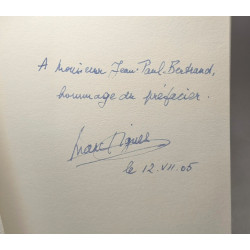 A Monsieur Jean-Paul Bertrand,
hommage du préfacier.
Marc
le 12.VII.05